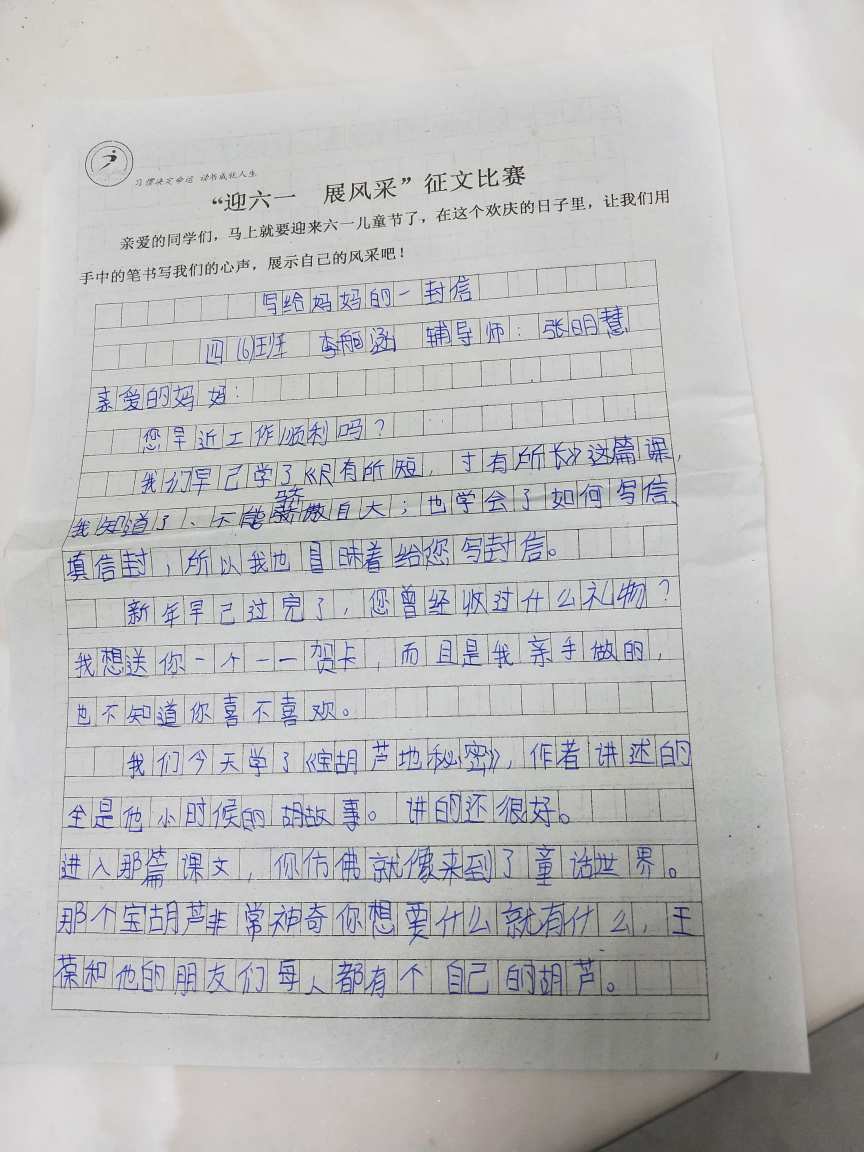 习惯决定命运 读书成就人生
“迎六一 展风采”征文比赛
亲爱的同学们，马上就要迎来六一儿童节了，在这个欢庆的日子里，让我们用
手中的笔书写我们的心声，展示自己的风采吧！
写给妈妈的一封信
四(6)班 李舸涵 辅导师：张明慧
亲爱的妈妈：
您早近工作顺利吗？
我们早已学了《尺有所短，寸有所长》这篇课，
我知道了、不能骄傲自大；也学会了如何写信、
填信封，所以我也冒昧着给您写封信。
新年早己过完了，您曾经收过什么礼物？
我想送你一个一一贺卡，而且是我亲手做的，
也不知道你喜不喜欢。
我们今天学了《宝胡芦地秘密》，作者讲述的
全是他小时候的胡故事。讲的还很好。
进入那篇课文，你仿佛就像来到了童话世界。
那个宝胡芦非常神奇你想要什么就有什么，王
葆和他的朋友们每人都有个自己的胡芦。